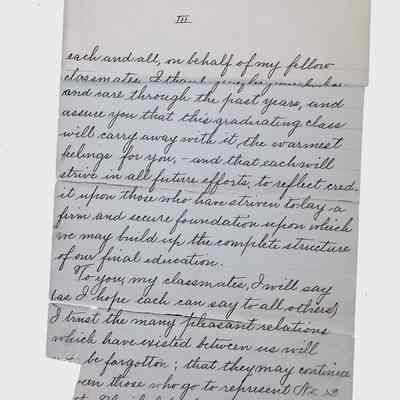 III
each and all, on behalf of my fellow
classmates, I thank
and care through the past years, and
assure you that this graduating class
will carry away with it, the warmest
feelings for you, – and that each will
strive in all future efforts, to reflect cred-
it upon those who have striven to lay a
firm and secure foundation upon which
we may build up the complete structure
of our final education.
To you, my classmates, I will say
(as I hope each can say to all others)
I trust the many pleasant relations
which have existed between us will
be forgotton ; that they may continue
those who go to represent